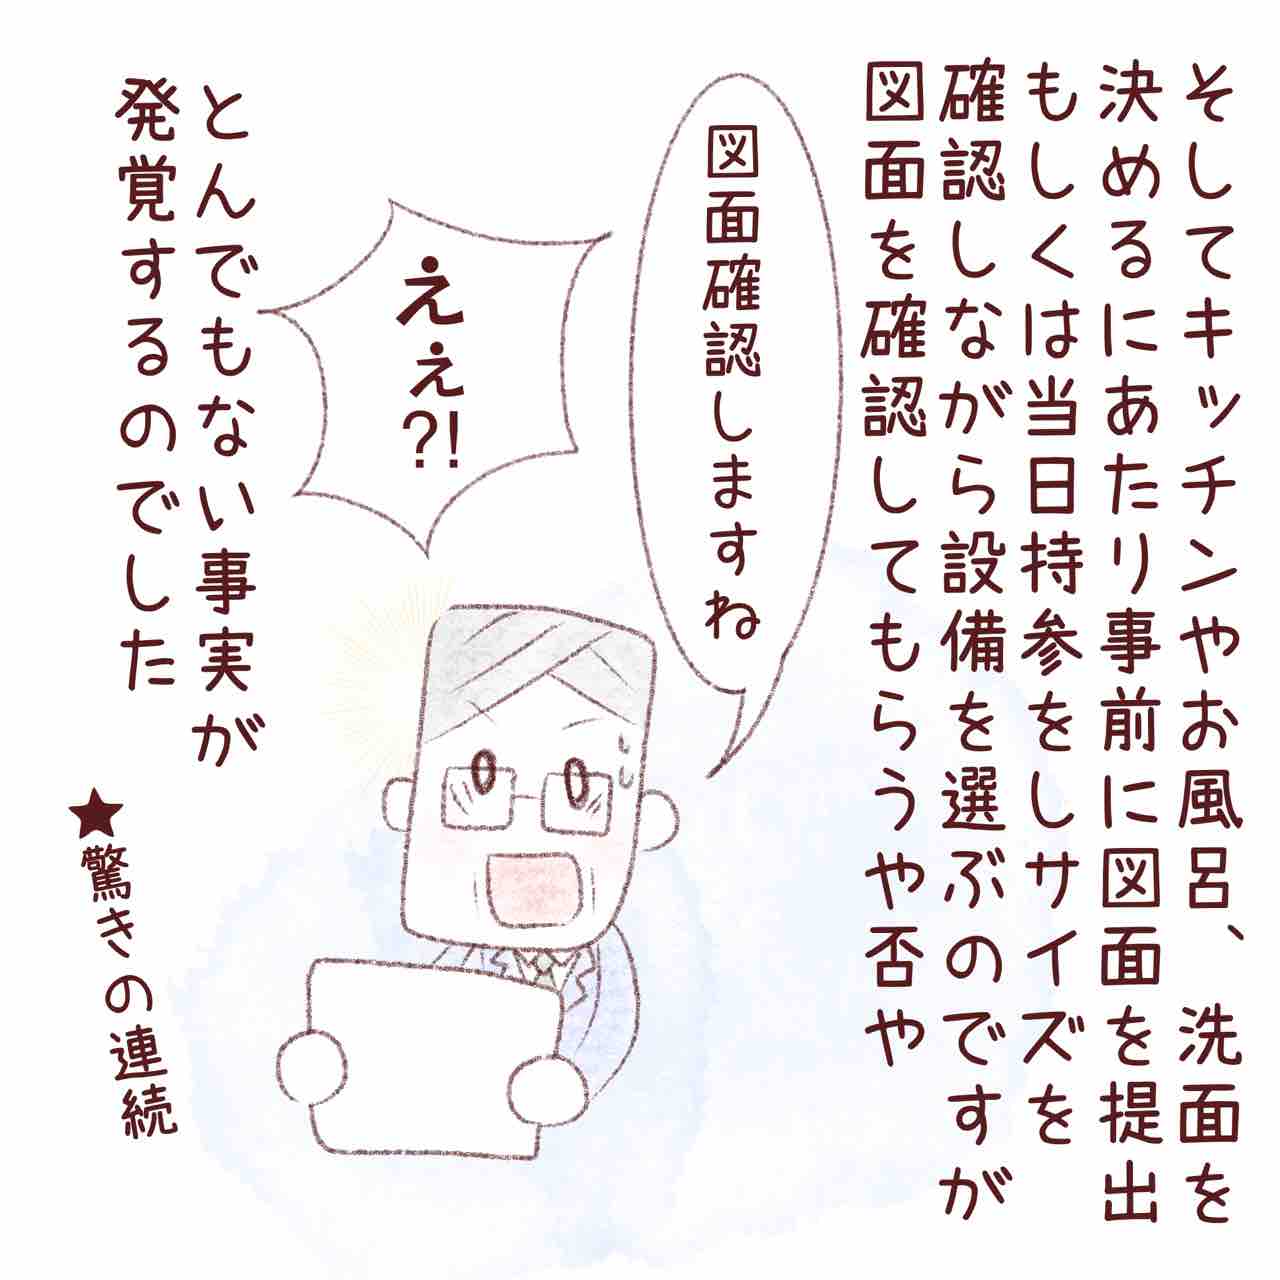 そしてキッチンやお風呂、洗面を
決めるにあたり事前に図面を提出
もしくは当日持参をしサイズを
確認しながら設備を選ぶのですが
図面を確認してもらうや否や
図面確認しますね
えぇ
?!
とんでもない事実が
発覚するのでした
★驚きの連続